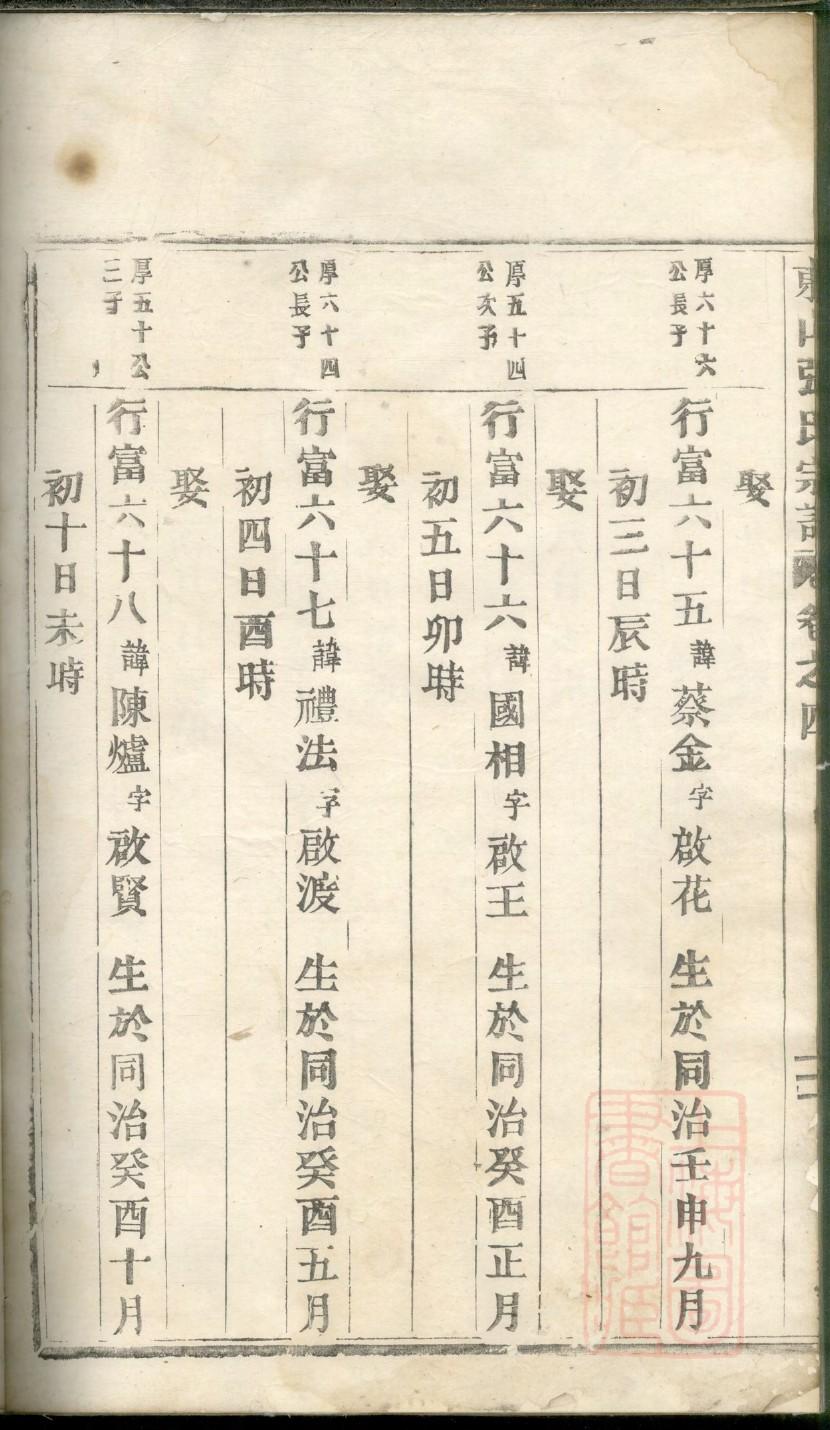 東山張氏宗譜
卷之四
娶
厚六十六
公長子
行富六十五諱蔡金字啟花 生於同治壬申九月
初三日辰時
娶
厚五十四
公次子
行富六十六諱國相字啟王 生於同治癸酉正月
初五日卯時
娶
厚六十四
公長子
行富六十七諱禮法字啟渡 生於同治癸酉五月
初四日酉時
娶
厚五十公
三子
行富六十八諱陳爐字啟賢 生於同治癸酉十月
初十日未時
上海圖
書館藏